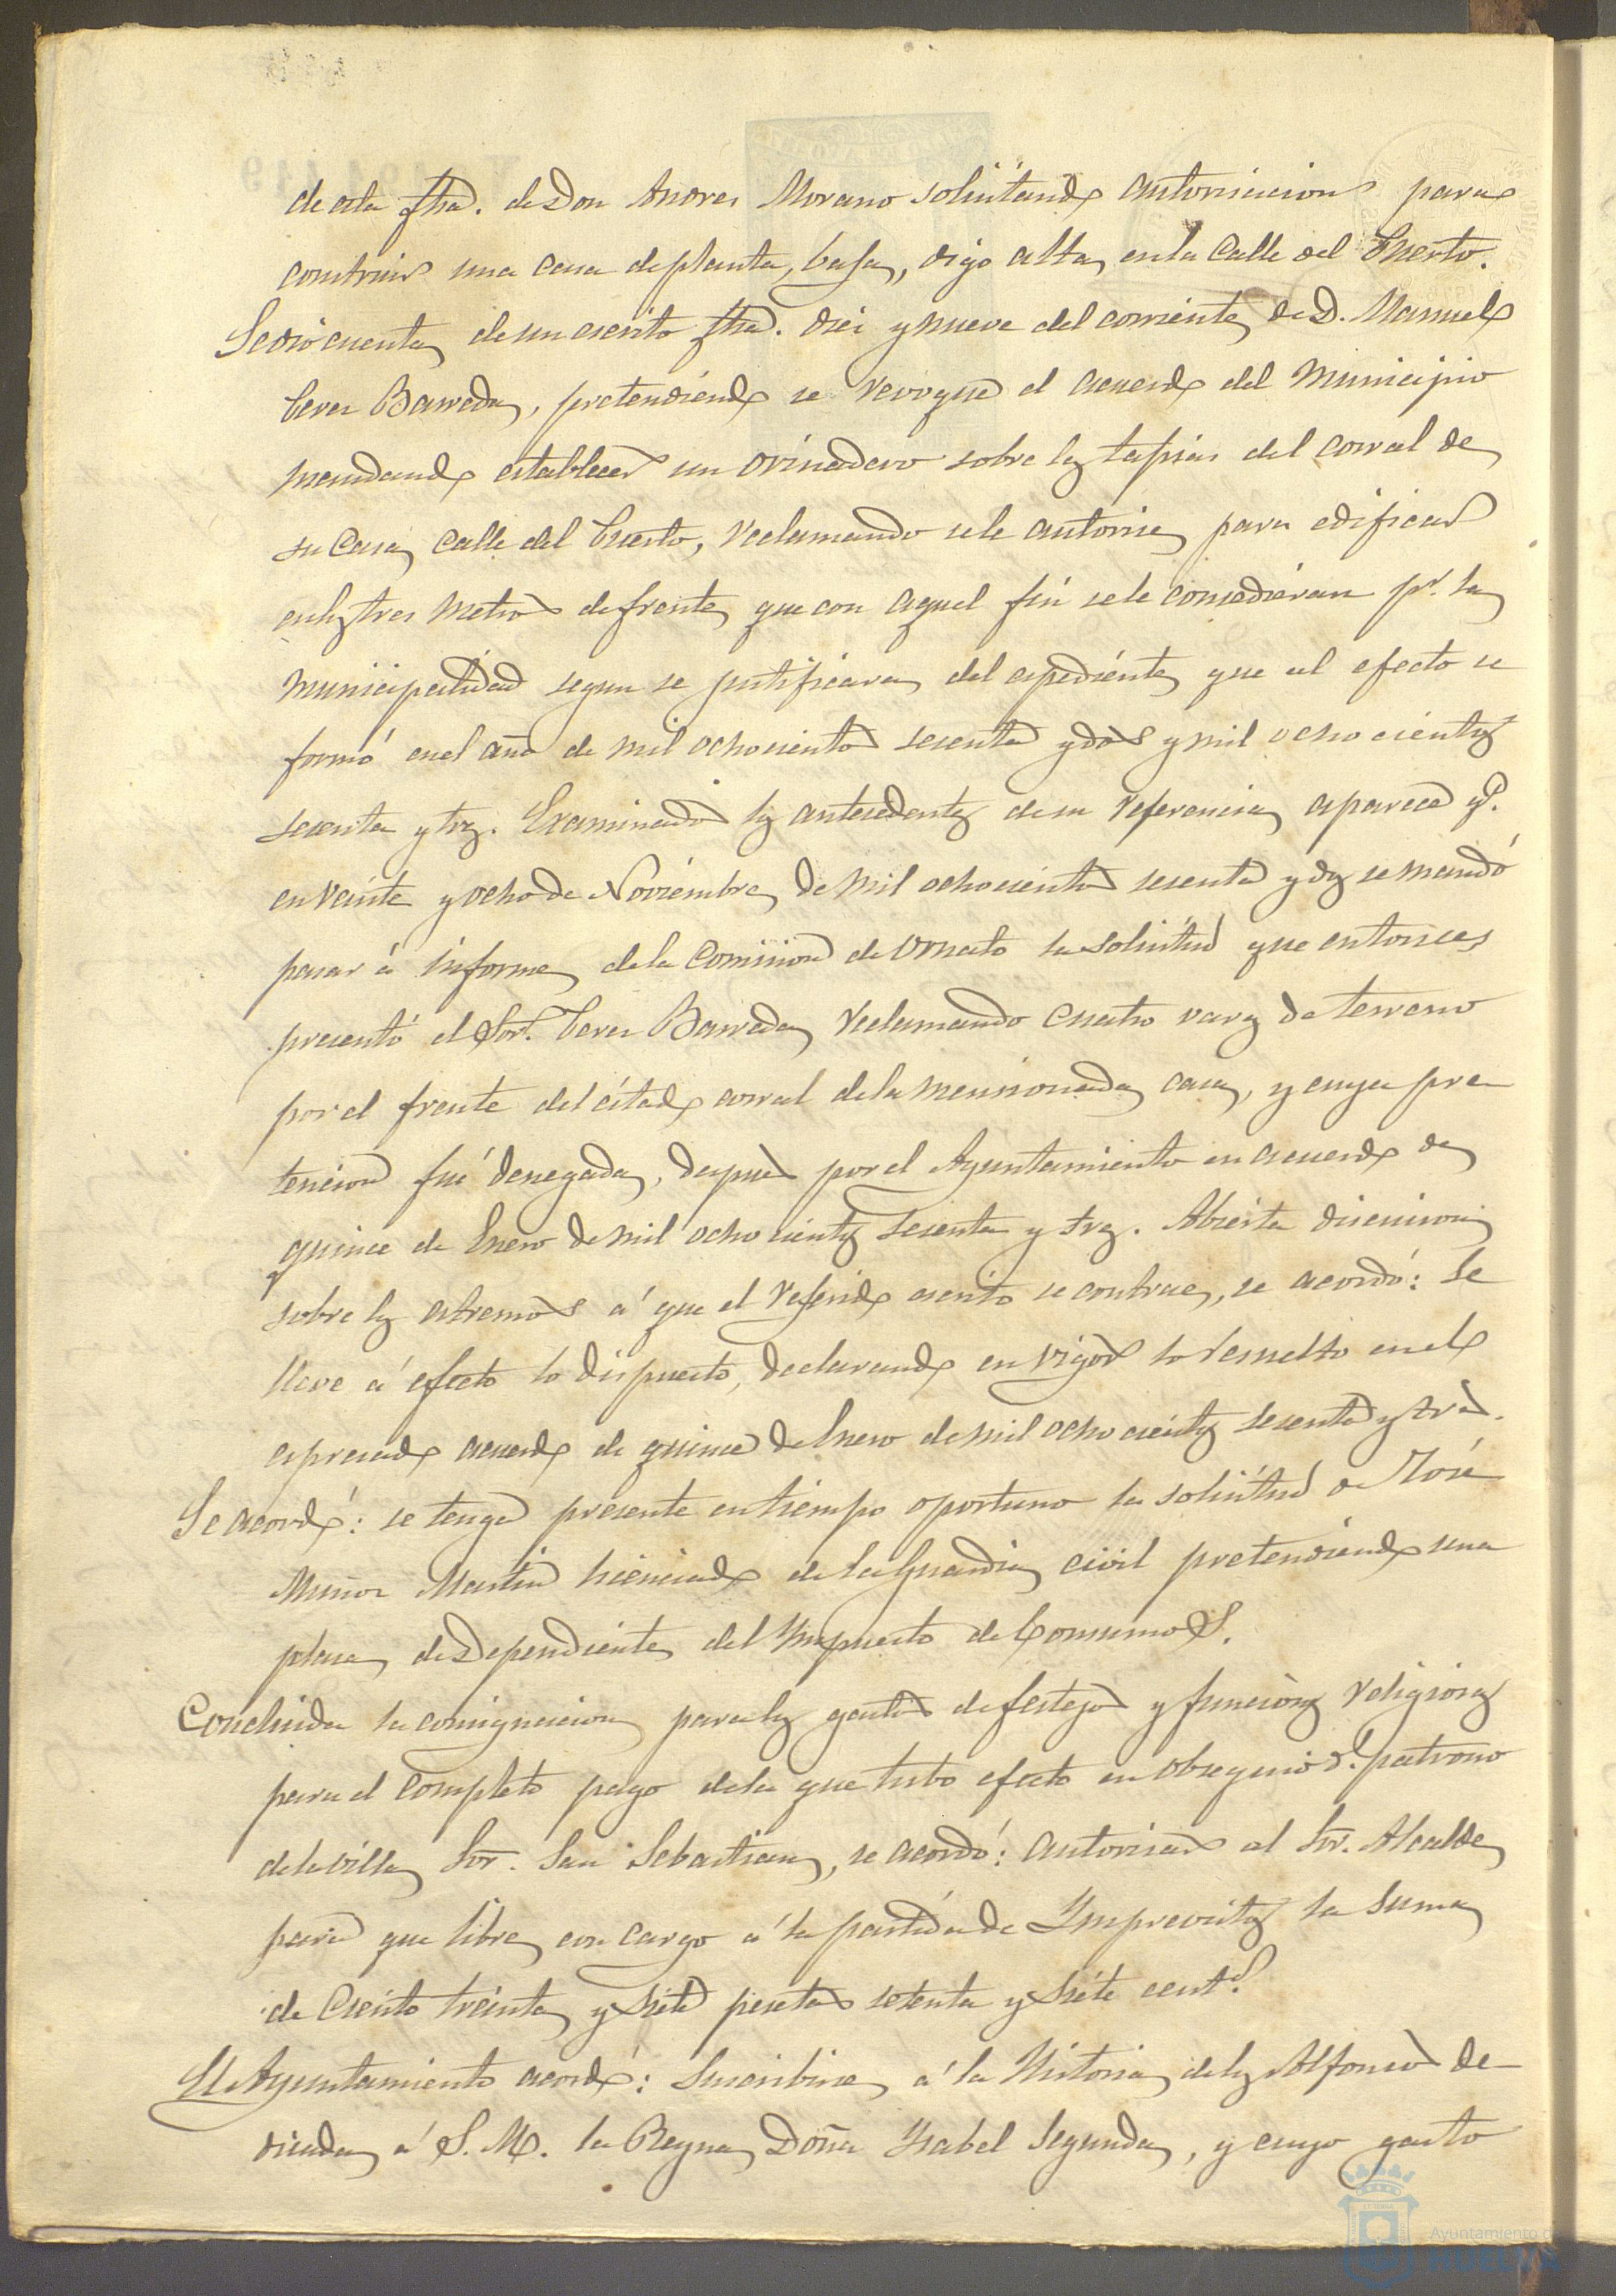 de esta fha. de Don Andres Morano solicitando autorisacion para
construir una casa de planta, baja, digo alta, en la Calle del Puerto.
Se dió cuenta de un escrito fha. diez y nueve del corriente, de D. Manuel
Perez Barreda, pretendiendo se revoque el acuerdo del Municipio
mandando establecer un orinadero sobre las tapias del corral de
su Casa, Calle del Puerto, reclamando se le autorise, para edificar
en los tres metros de frente, que con aquel fin se le consedieran pr. la
municipalidad segun se justificara del espediente, que al efecto se
formó en el año de mil ochocientos sesenta y dos y mil ochocientos
sesenta y tres. Examinados los antesedentes de su referencia, aparece q.
en veinte y ocho de Noviembre, de mil ochocientos sesenta y dos se mandó
pasar á informe de la Comision de Ornato la solicitud que entonces
presentó el Sor. Perez Barreda, reclamando cuatro varas de terreno
por el frente del citado corral de la mensionada casa, y cuya pre-
tencion fué denegada, despues por el Ayuntamiento en acuerdo de
quince de Enero de mil ochocientos sesenta y tres. Abierta discusion
sobre los estremos á que el referido escrito se contrae, se acordó: Se
lleve á efecto lo dispuesto, declarando en vigor lo resuelto en el
espresado acuerdo de quince de Enero de mil ochocientos sesenta y tres.
Se acordó: se tenga presente en tiempo oportuno la solicitud de José
Muñoz Martin lisenciado de la Guardia civil pretendiendo una
plasa, de Dependiente del Ympuesto de Consumos.
Concluida la consignacion para los gastos de festejos y funciones religiosas
para el completo pago de la que tubo efecto en obsequio d.l patrono
de la villa, Sor. San Sebastian, se acordó: autorisar al Sor. Alcalde
para que libre, con cargo á la partida de Ymprevistos la suma
de Ciento treinta y siete pesetas setenta y siete cent.s
El Ayuntamiento acordó: Suscribirse á la Historia de los Alfonsos de-
dicada á S. M. la Reyna Doña Ysabel Segunda, y cuyo gasto
Ayuntamiento de
HUELVA